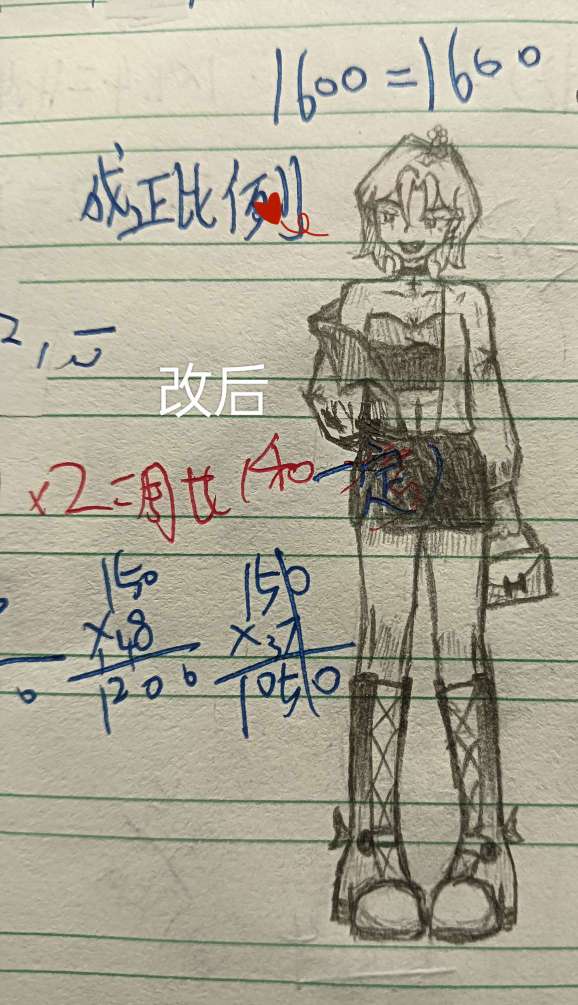 1600=1600
成正比例
改后
×2=周长(和一定)
150
×48
1206
150
×37
1050